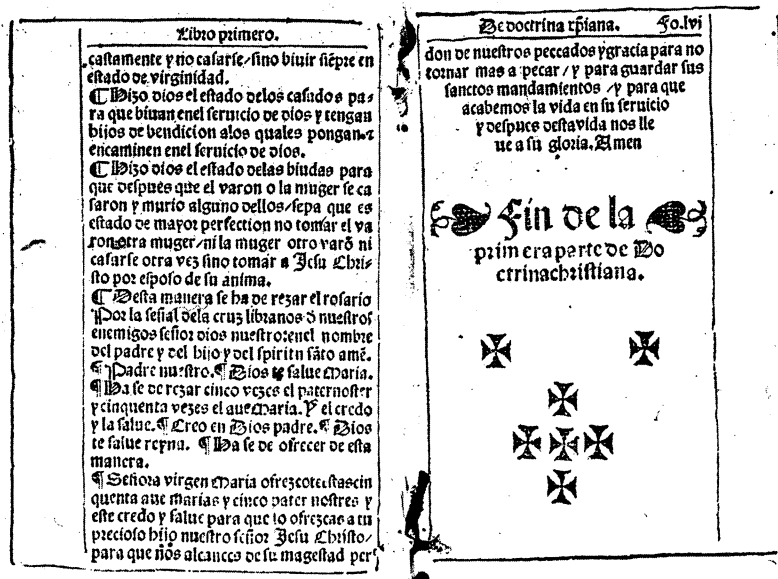 Libro primero.
castamente y no casarse/sino biuir siẽpre en
estado de virginidad.
¶ Hizo dios el estado delos casados pa-
ra que biuan enel seruicio de dios y tengan
hijos de bendicion alos quales pongan ⁊
encaminen enel seruicio de dios.
¶ Hizo dios el estado delas biudas para
que despues que el varon o la muger se ca
saron y murio alguno dellos/sepa que es
estado de mayor perfection no tomar el va
ron otra muger/ni la muger otro varõ ni
casarse otra vez sino tomar a Jesu Chri-
sto por esposo de su anima.
¶ Desta manera se ha de rezar el rosario
Por la señal dela cruz libranos d̕ nuestros
enemigos señor dios nuestro: enel nombre
del padre y del hijo y del spiritu sãto amẽ.
¶ Padre nuestro. ¶ Dios te salue Maria.
¶ Ha se de rezar cinco vezes el paternoster
y cinquenta vezes el aue Maria. Y el credo
y la salue. ¶ Creo en Dios padre. ¶ Dios
te salue reyna. ¶ Ha se de ofrecer de esta
manera.
¶ Señora virgen Maria ofrezcote estas cin
quenta aue marias y cinco pater nostres y
este credo y salue para que lo ofrezcas a tu
precioso hijo nuestro señor Jesu Christo/
para que nos alcances de su magestad per
De doctrina xp̃iana. Fo.lvi
don de nuestros peccados y gracia para no
tornar mas a pecar/y para guardar sus
sanctos mandamientos/y para que
acabemos la vida en su seruicio
y despues desta vida nos lle
ue a su gloria. Amen
Fin de la
primera parte de Do
ctrina christiana.